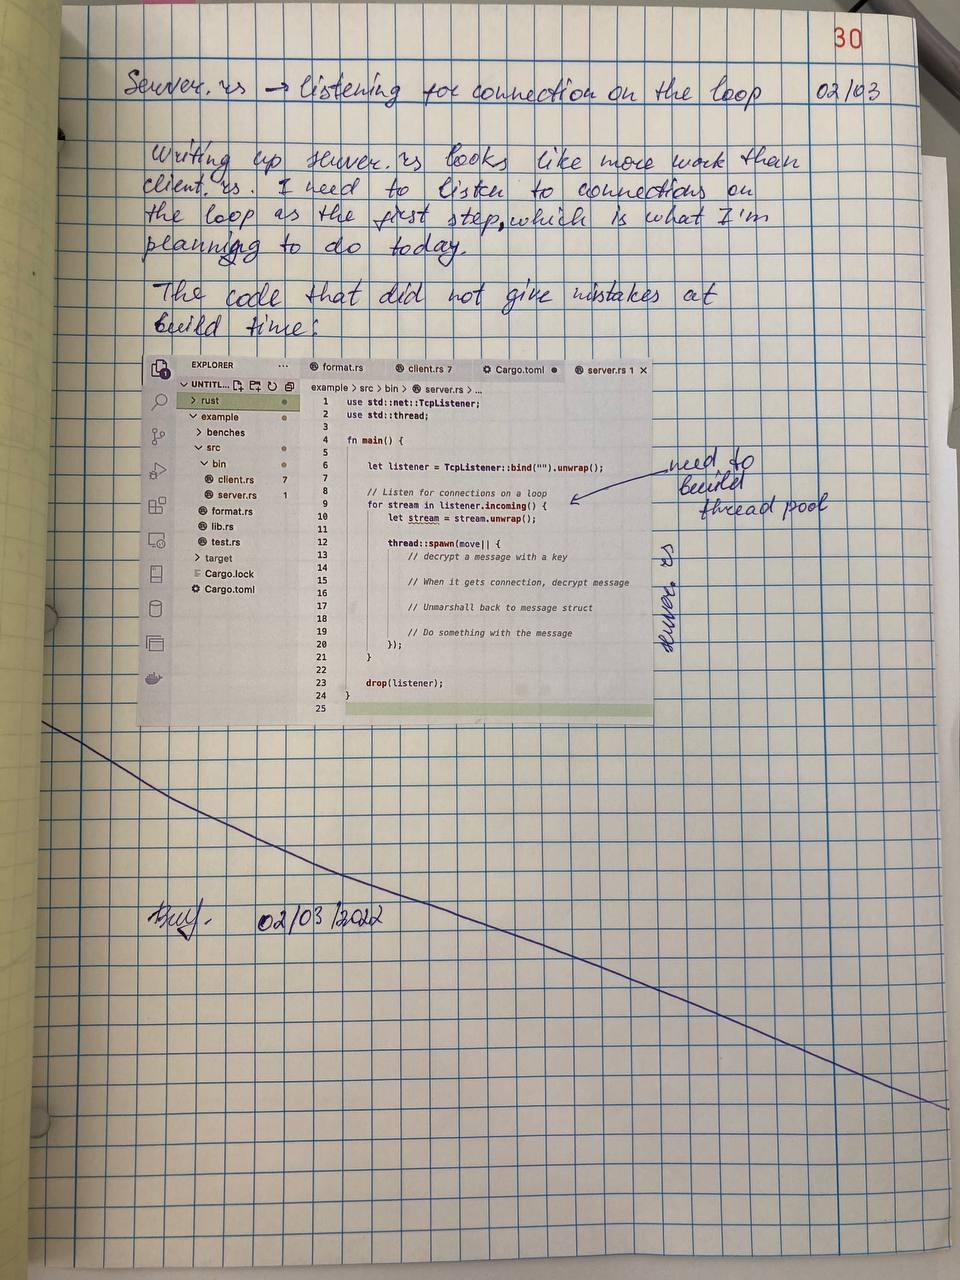 30
Server.rs → listening for connection on the loop 02/03
Writing up server.rs looks like more work than
client.rs. I need to listen to connections on
the loop as the first step, which is what I'm
planning to do today.
The code that did not give mistakes at
build time:
EXPLORER ...
UNTITL...
> rust
example
> benches
src
bin
client.rs 7
server.rs 1
format.rs
lib.rs
test.rs
> target
Cargo.lock
Cargo.toml
format.rs client.rs 7 Cargo.toml ● server.rs 1 ×
example > src > bin > server.rs > ...
1 use std::net::TcpListener;
2 use std::thread;
3
4 fn main() {
5
6 let listener = TcpListener::bind("").unwrap();
7
8 // Listen for connections on a loop
9 for stream in listener.incoming() {
10 let stream = stream.unwrap();
11
12 thread::spawn(move|| {
13 // decrypt a message with a key
14
15 // When it gets connection, decrypt message
16
17 // Unmarshall back to message struct
18
19 // Do something with the message
20 });
21 }
22
23 drop(listener);
24 }
25
need to
build
thread pool
server.rs
02/03/2022